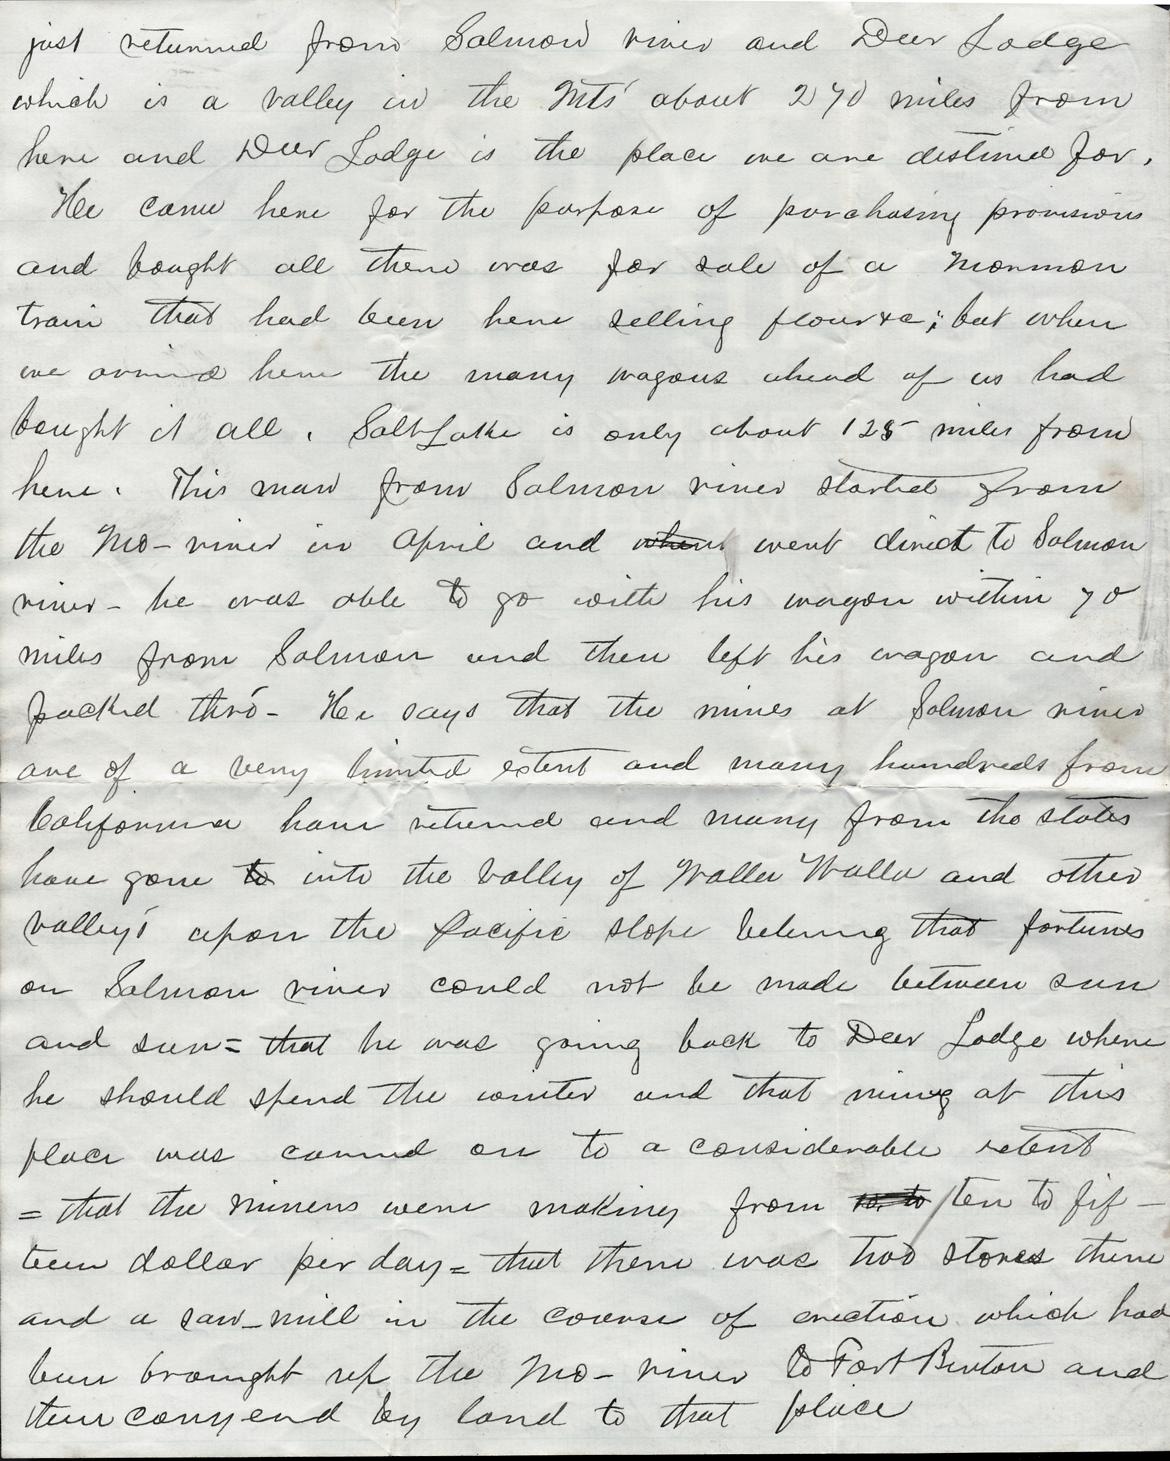 just returned from Salmon river and Deer Lodge
which is a valley in the Mts' about 270 miles from
here and Deer Lodge is the place we are destined for.
He came here for the purpose of purchasing provisions
and bought all there was for sale of a Mormon
train that had been here selling flour &c; but when
we arrived here the many wagons ahead of us had
bought it all. Salt Lake is only about 125 miles from
here. This man from Salmon river started from
the Mo- river in April and when went direct to Salmon
river- he was able to go with his wagon within 70
miles from Salmon and then left his wagon and
packed thro'- He says that the mines at Salmon river
are of a very limited extent and many hundreds from
California have returned and many from the states
have gone to into the valley of Walla Walla and other
valley's upon the Pacific slope believing that fortunes
on Salmon river could not be made between sun
and sun= that he was going back to Deer Lodge where
he should spend the winter and that mining at this
place was carried on to a considerable extent
= that the miners were making from to ten to fif-
teen dollar per day= that there was two stores there
and a saw-mill in the course of erection which had
been brought up the Mo- river to Fort Benton and
then conveyed by land to that place